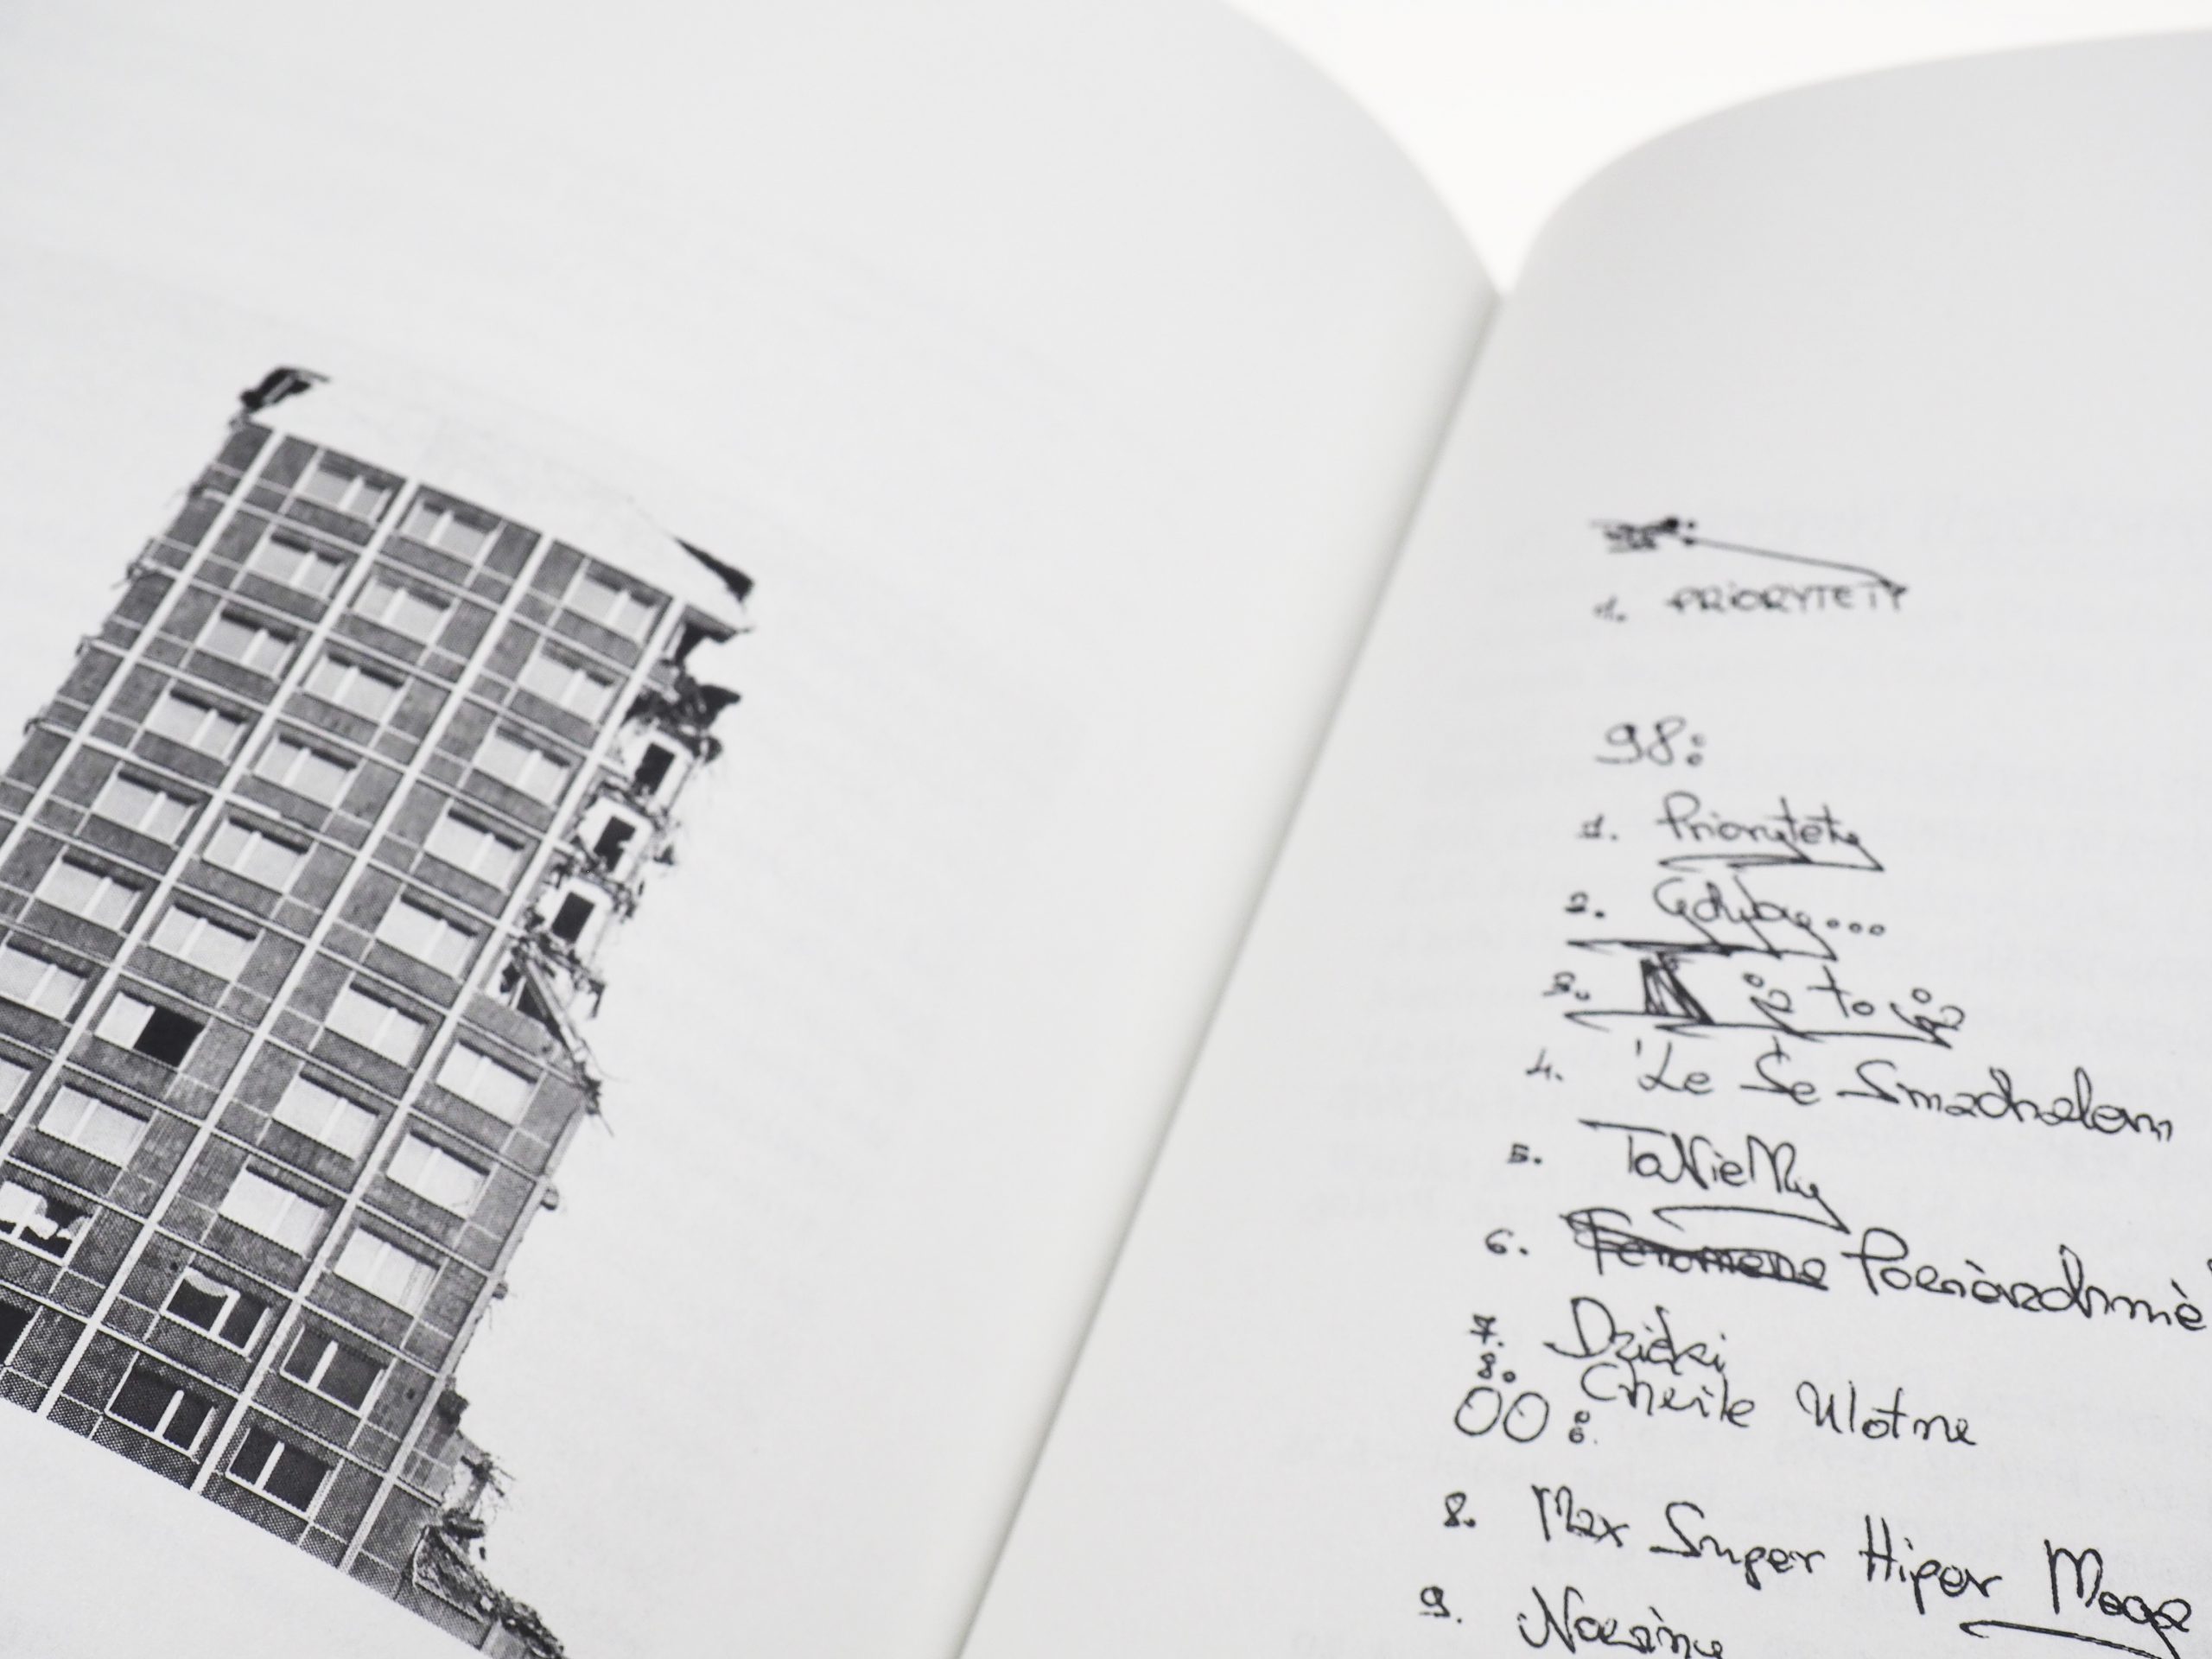 1. PRIORYTETY
98:
1. Priorytety
2. Gdyby...
3. i to i
4. Że Se Smadhalam
5. TaNieMy
6. Fenomene
7. Dzięki
8. Chwile Ulotne
00:
8. Max Super Hiper Mega
9.